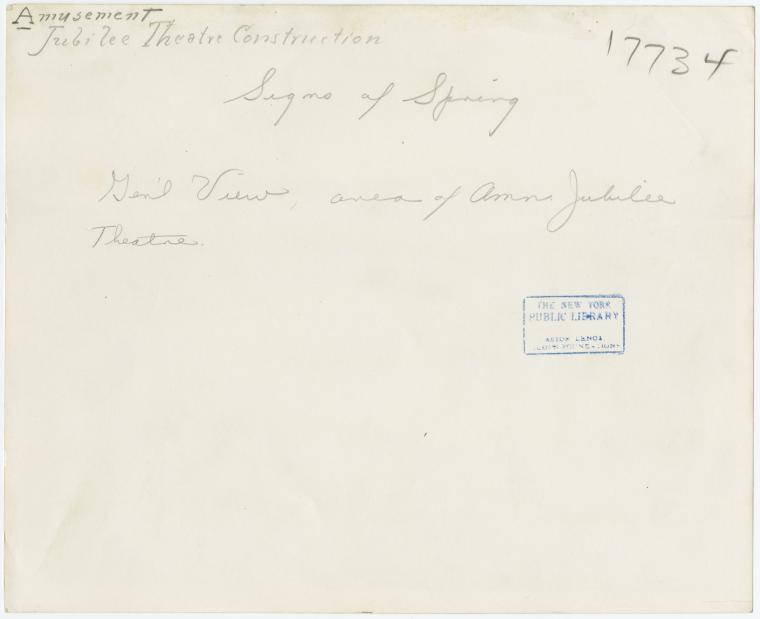 Amusement
Jubilee Theatre Construction
17734
Signs of Spring
Gen'l View, area of Amn. Jubilee
Theatre.
THE NEW YORK
PUBLIC LIBRARY
ASTOR LENOX
TILDEN FOUNDATIONS